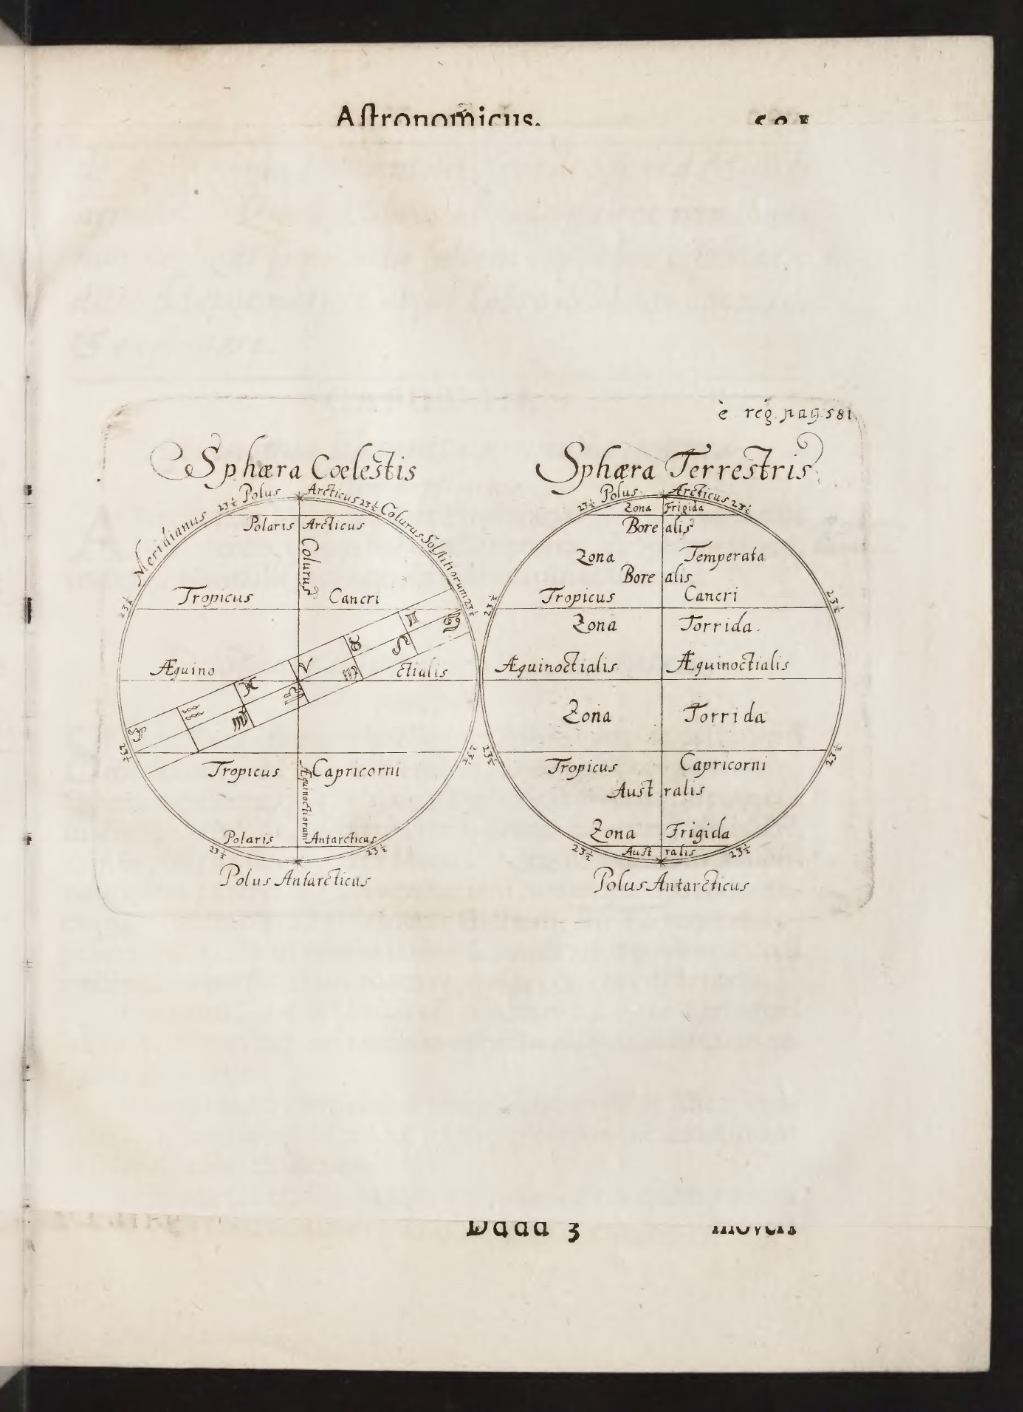 Aſtronomicus.
è reg. pag. 581.
Sphæra Coelestis
Polus Arcticus
23½ 23½
Meridianus
Colurus Solstitiorum
Polaris Arcticus
Colurus
Tropicus Cancri
23½ 23½
Æquino ctialis
♊ ♋
♉ ♌
♈ ♍
♓ ♎
♒ ♏
♑
23½ 23½
Tropicus Capricorni
Æquinoctiorum
Polaris Antarcticus
23½ 23½
Polus Antarcticus
Sphæra Terrestris
Polus Arcticus
23½ 23½
Zona Frigida
Bore alis
Zona Temperata
Bore alis
Tropicus Cancri
23½ 23½
Zona Torrida.
Æquinoctialis Æquinoctialis
Zona Torrida
23½ 23½
Tropicus Capricorni
Aust ralis
Zona Frigida
Aust ralis
23½ 23½
Polus Antarcticus
Dddd 3